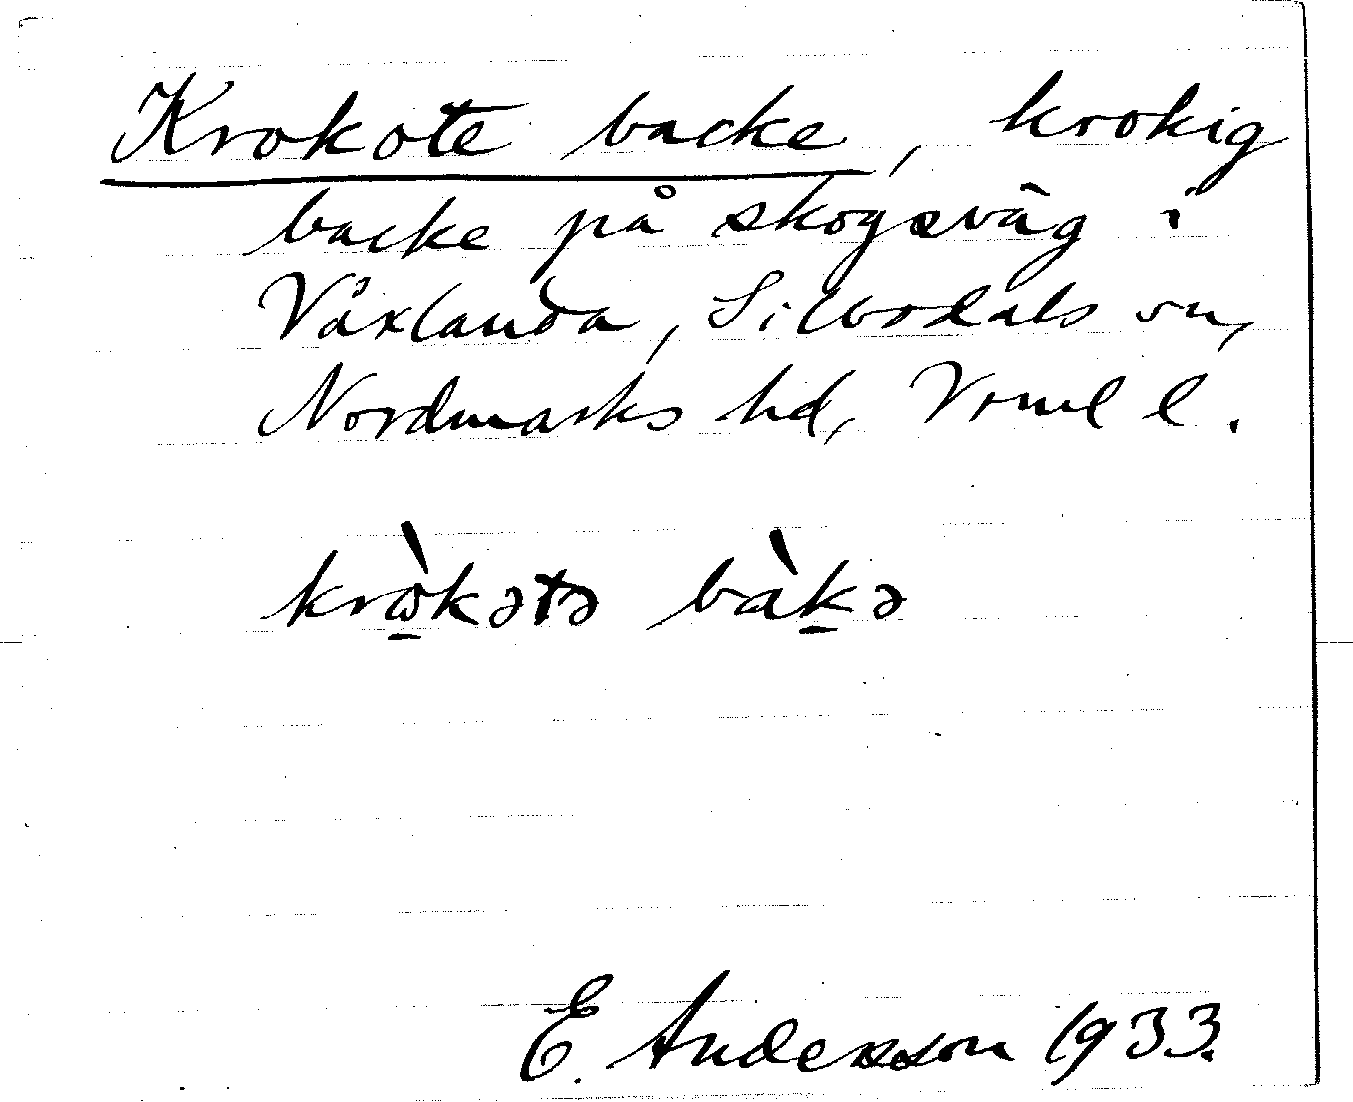 Krokote backe, krokig
backe på skogsväg i
Våxlanda, Silbodals sn,
Nordmarks hd, Vrml l.
krὼ̲kətə bàk̲ə
E. Andersson 1933.